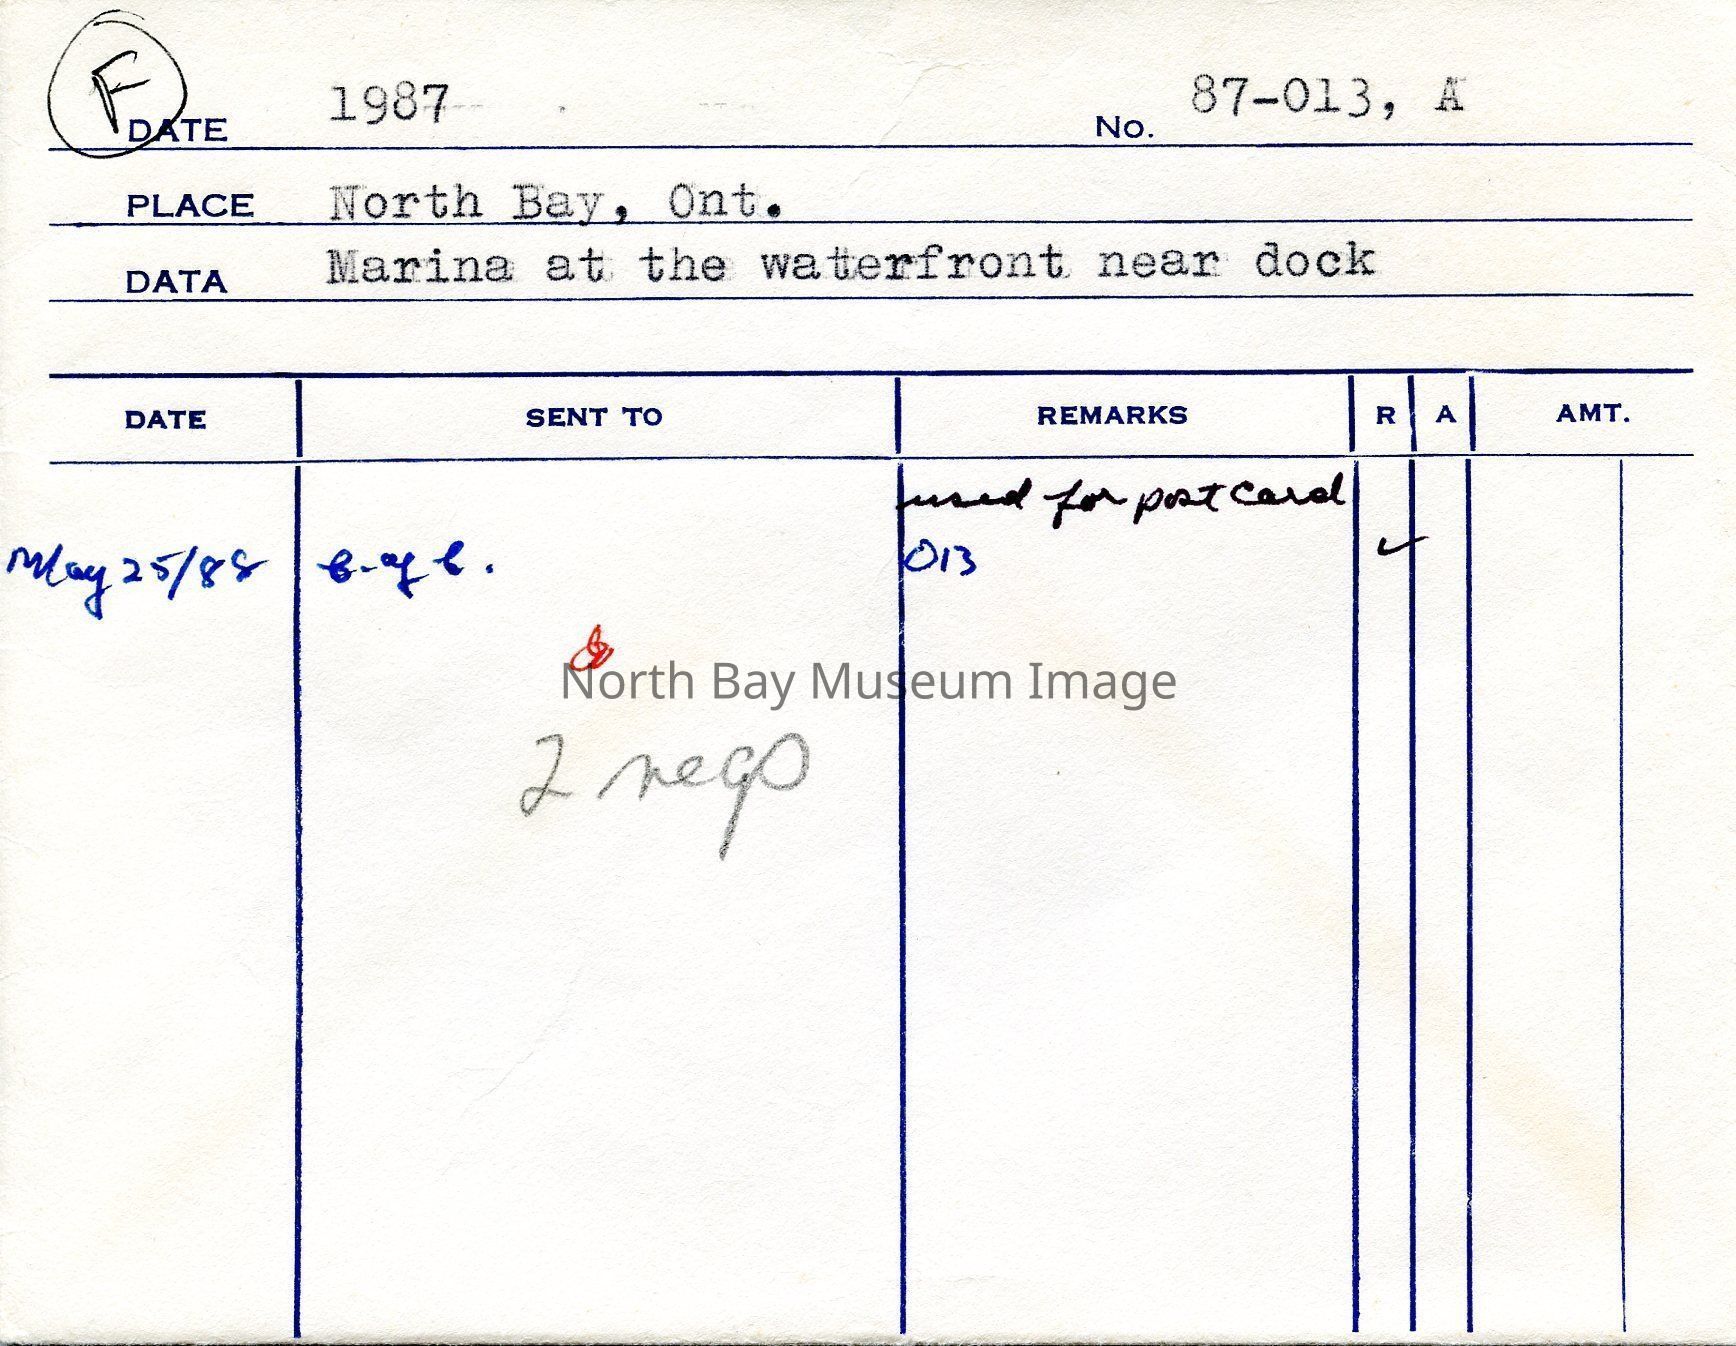 F
DATE 1987 No. 87-013, A
PLACE North Bay, Ont.
DATA Marina at the waterfront near dock
DATE SENT TO REMARKS R A AMT.
used for postcard
May 25/88 C. of C. 013 ✓
North Bay Museum Image
2 negs